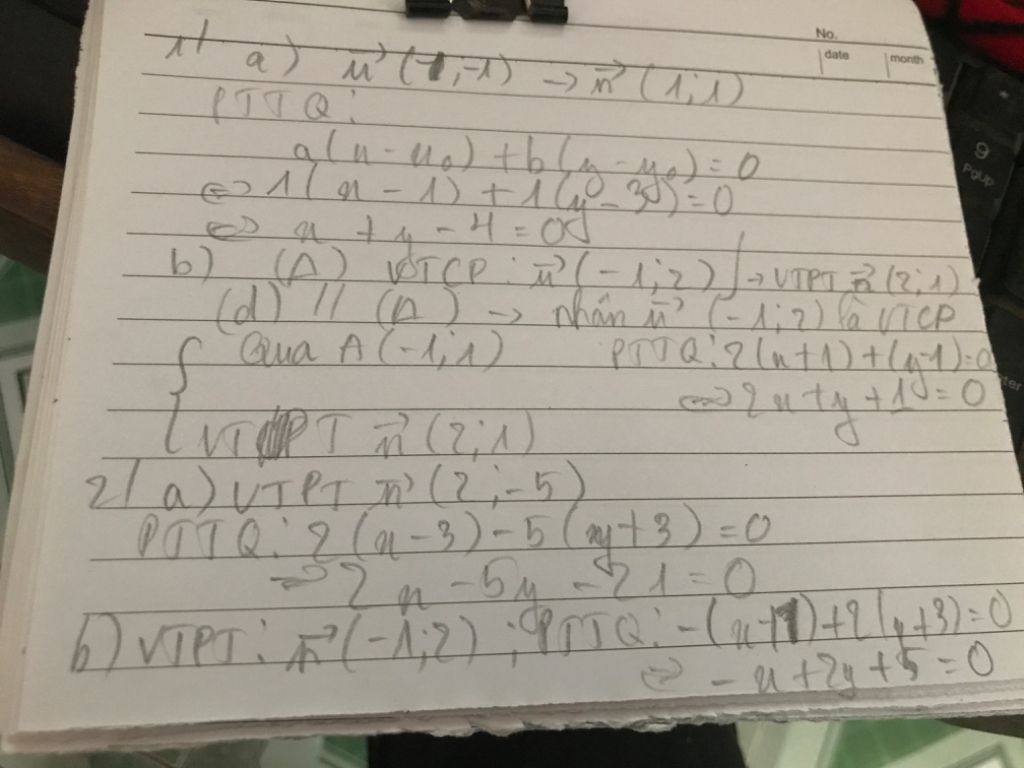 No.
date month
1/ a) u⃗ (1;-1) → n⃗ (1;1)
PTTQ:
a(x-x₀)+b(y-y₀)=0
⇔ 1(x-1)+1(y-3)=0
⇔ x+y-4=0
b) (Δ) VTCP: u⃗ (-1;2) → VTPT n⃗ (2;1)
(d) // (Δ) → nhận u⃗ (-1;2) là VTCP
{ Qua A(-1;1) PTTQ: 2(x+1)+(y-1)=0
⇔ 2x+y+1=0
VTPT n⃗ (2;1)
2/ a) VTPT n⃗ (2;-5)
PTTQ: 2(x-3)-5(y+3)=0
⇒ 2x-5y-21=0
b) VTPT: n⃗ (-1;2); PTTQ: -(x-1)+2(y+3)=0
⇔ -x+2y+5=0
9
PgUp